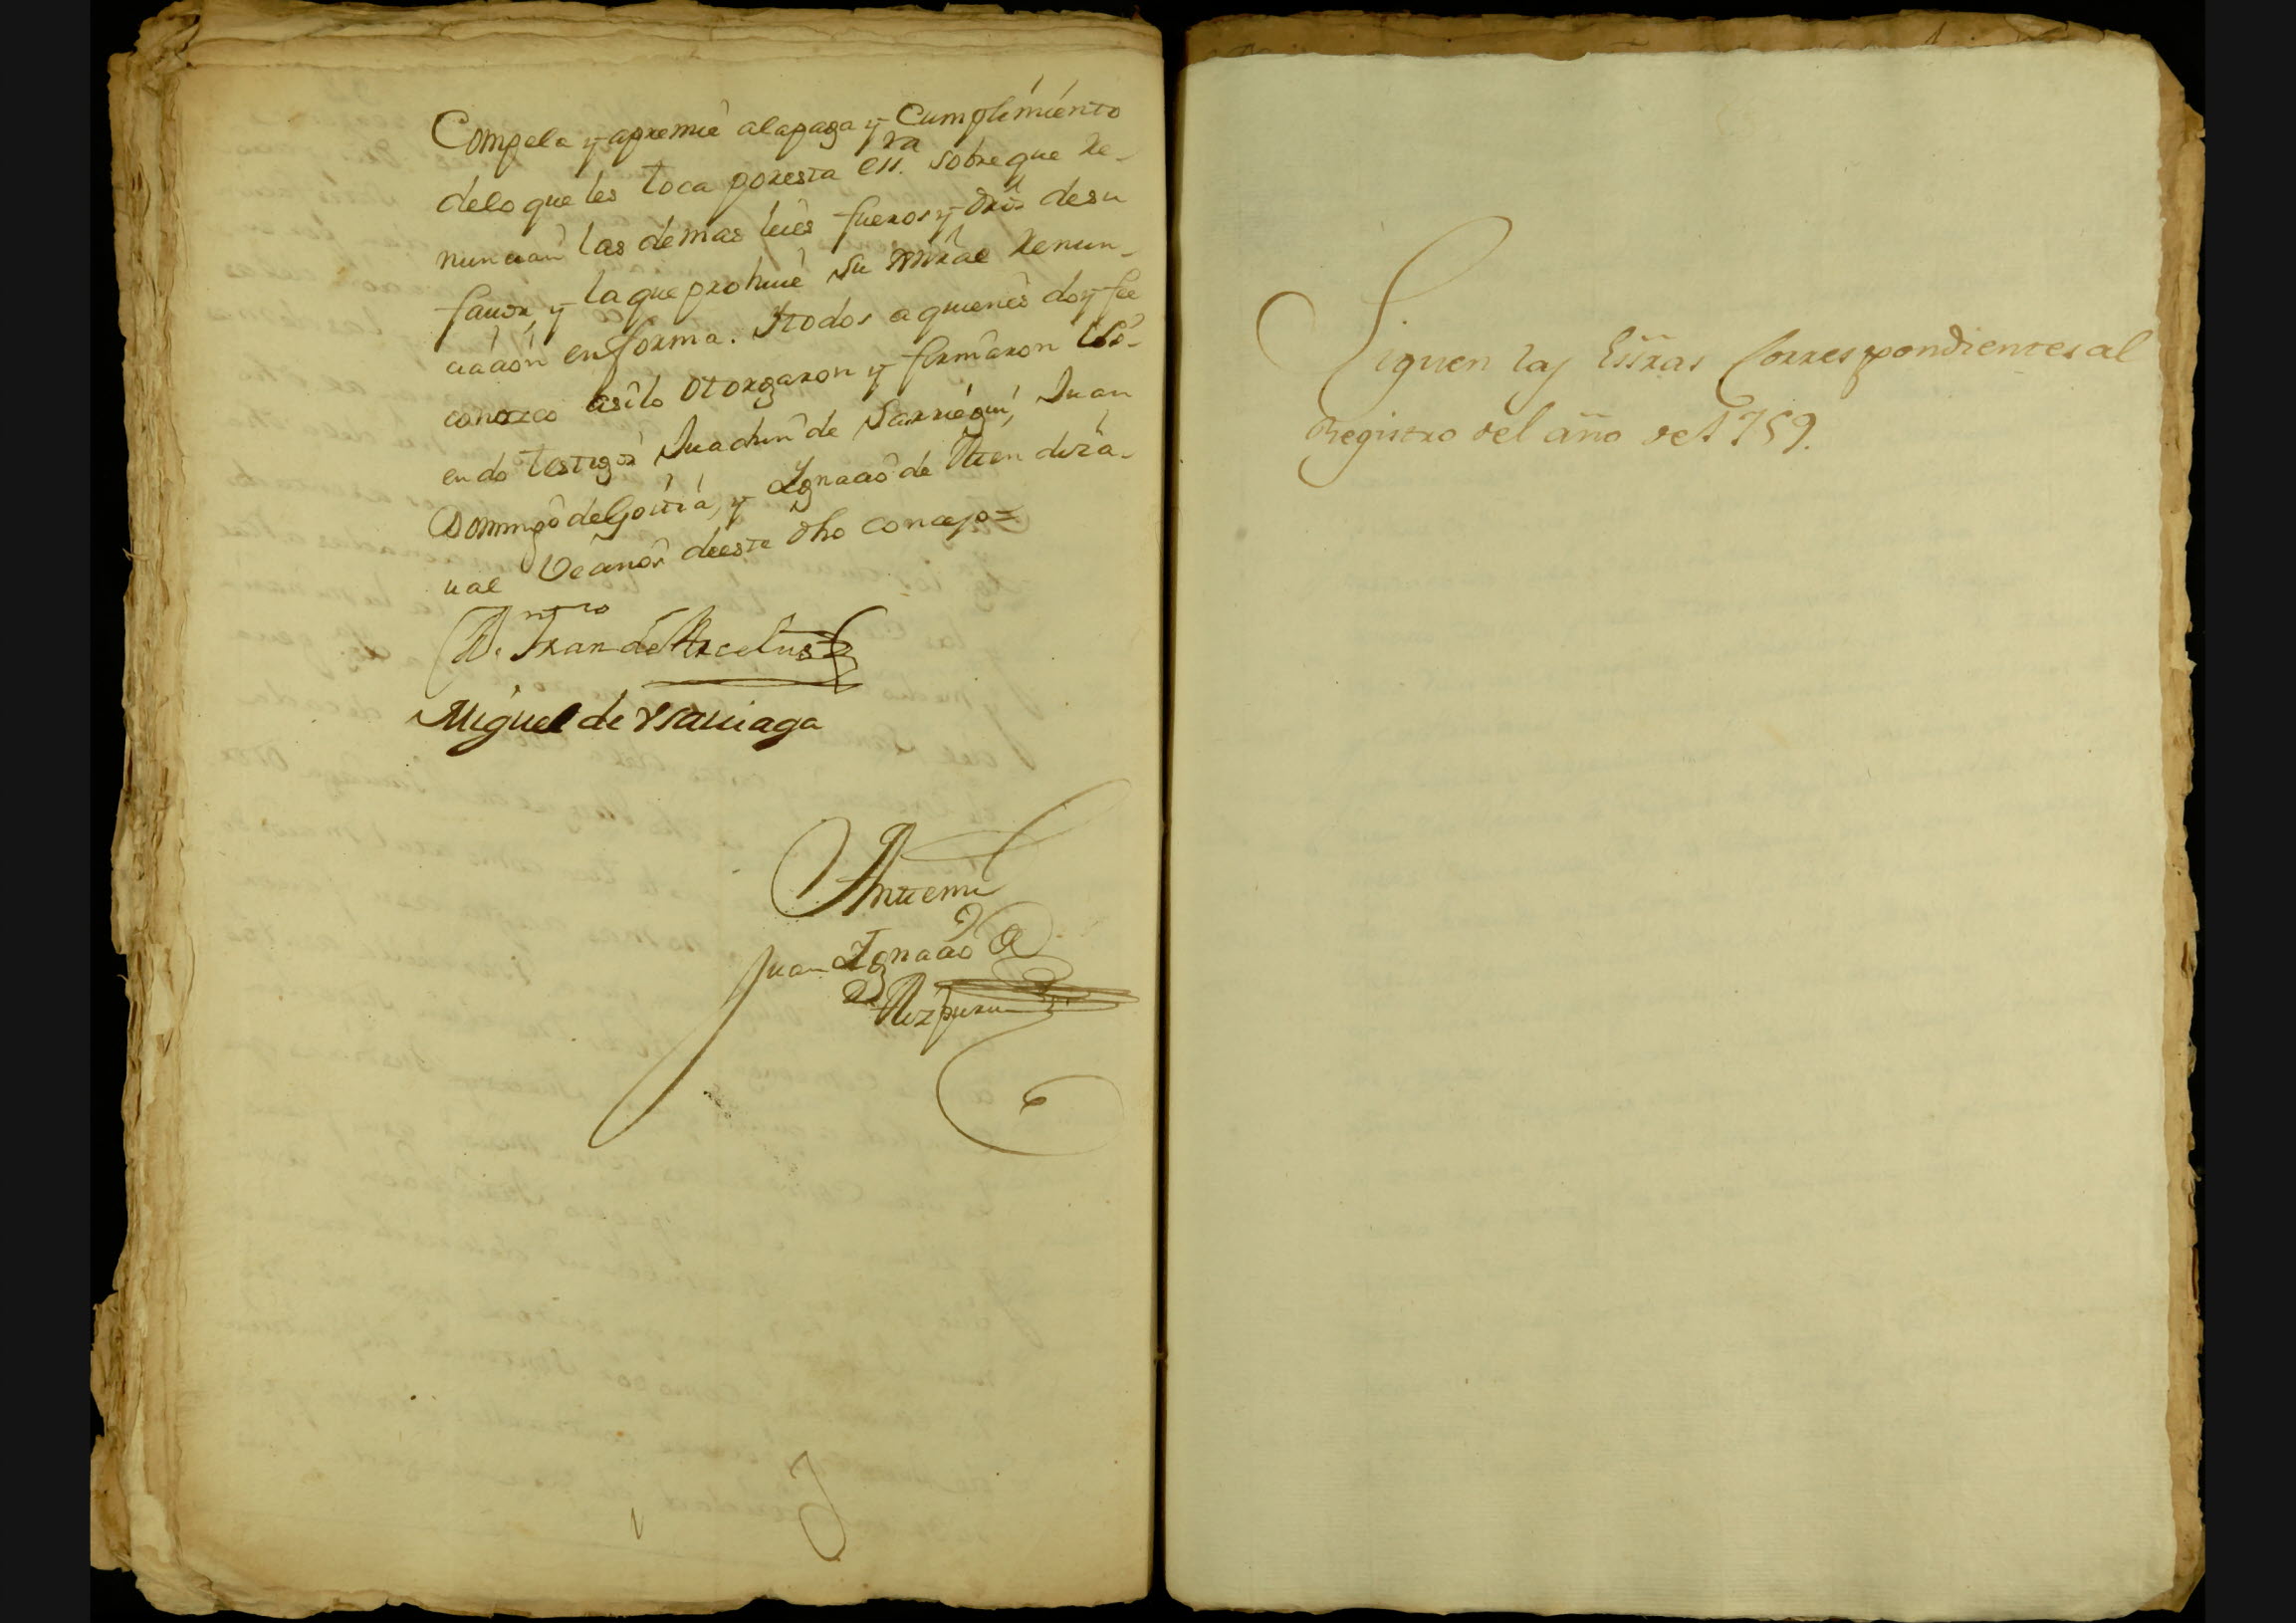 Compela y apremie alapaga y Cumplimiento
delo que les toca poresta ess.ra sobreque Re-
nuncian las demas leies fueros y dros desu
fauor, y la que prohiue su gnral Renun-
ciacion enforma. Itodos aquienes doy fee
conozco asilo otorgaron y firmaron sie-
endo testigos Juachin de Sarriegui, Juan
Domingo de Goitia, y Ignacio de Mendiza-
ual Vecinos deeste dho concejo=
D.n Fran.co de Arcelus
Miguel de Ysauiaga
Antemi
Juan Ignacio
de Aizpuru
Siguen las Essras Correspondientes al
Registro del año de 1759.